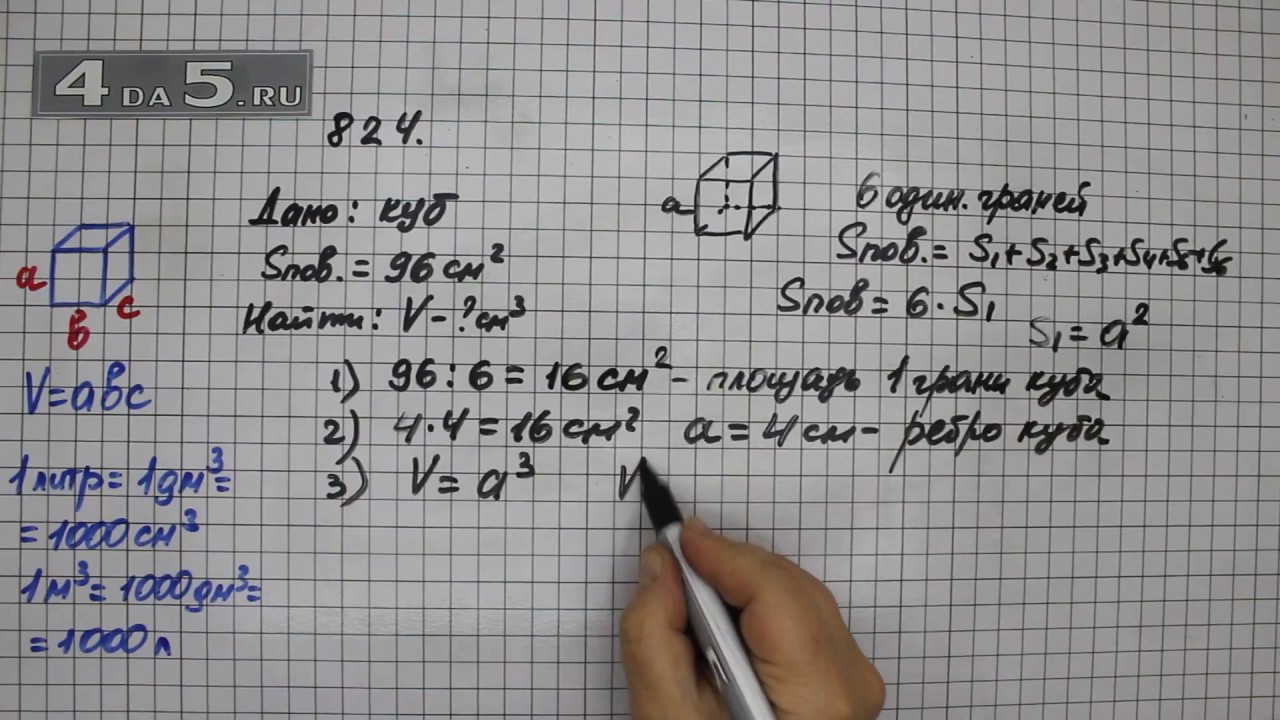 4 DA 5.RU
824.
Дано: куб
Sпов. = 96 см²
Найти: V - ? см³
a
6 один. граней
Sпов. = S₁+S₂+S₃+S₄+S₅+S₆
Sпов = 6 · S₁
S₁ = a²
1) 96 : 6 = 16 см² - площадь 1 грани куба
2) 4 · 4 = 16 см² a = 4 см - ребро куба
3) V = a³ V
a
в
c
V = авс
1 литр = 1 дм³ =
= 1000 см³
1 м³ = 1000 дм³ =
= 1000 л